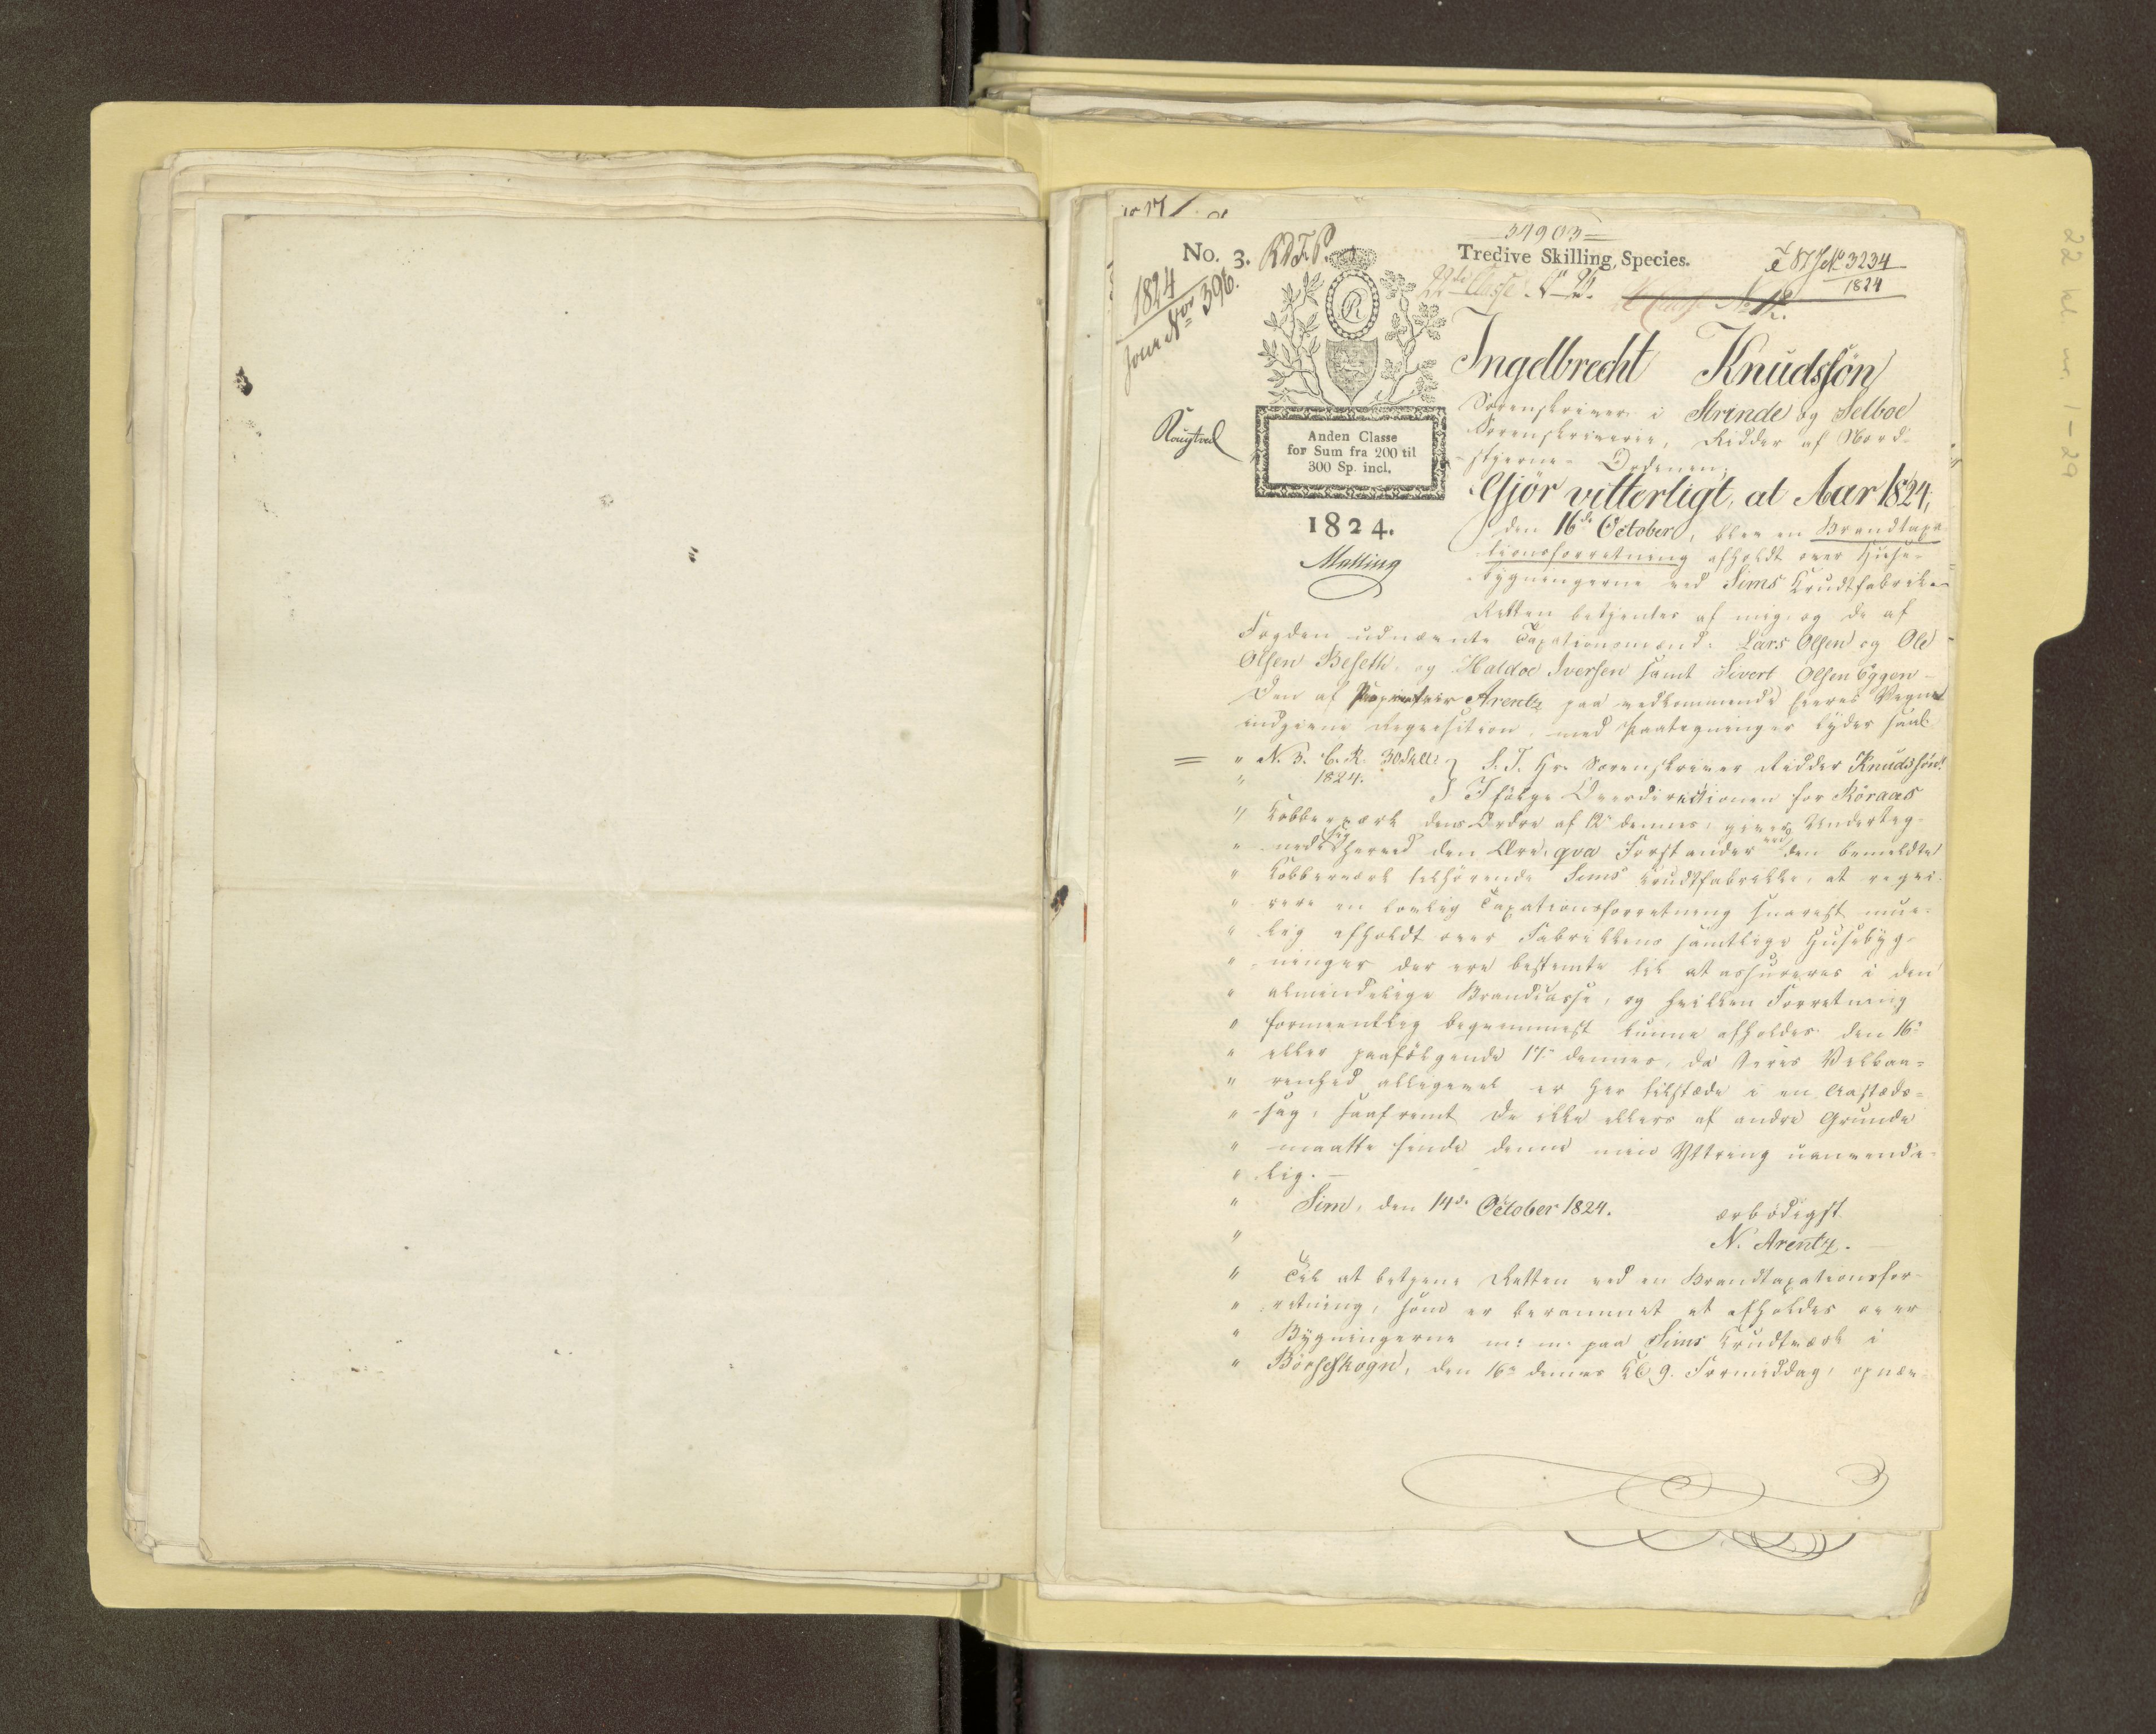 No. 3.
34903
Tredive Skilling Species.
No 3234
1824
22de Classe No 2.
1824
Jour No 396.
Ingelbrecht Knudssön
Sorenskriver i Strinde og Selboe
Sorenskriverie, Ridder af Nord-
stjerne-Ordenen,
Gjör vitterligt, at Aar 1824,
Anden Classe
for Sum fra 200 til
300 Sp. incl.
1824.
Malling
den 16de October, blev en Brandtaxa
tionsforretning afholdt over Huse-
bygningerne ved Sims Krudtfabrik.
Retten betjentes af mig og de af
Fogden udnævnte Taxationsmænd: Lars Olsen og Ole
Olsen Beseth, og Haldoe Iversen samt Sivert Olsen Eggen -
Den af Arentz paa vedkommende Eieres Vegne
indgivne Reqvisition, med Paategninger lyder saal:
" N. 3. C. R. 30 Skll: } S. T. Hr. Sorenskriver Ridder Knudssön!
" 1824. } Ifölge Overdirectionen for Röraas
" Kobberværk dens Ordre af 12te dennes, giver Underteg-
" nede sig herved den Ære, qva Forstander ved den bemeldte
" Kobberværk tilhörende Sims Krudtfabrikke, at reqvi-
" rere en lovlig Taxationsforretning snarest mue-
" lig afholdt over Fabrikkens samtlige Husebyg-
" ninger der ere bestemte til at assureres i den
" almindelige Brandcasse, og hvilken Forretning
" formeentlig beqvemmest kunne afholdes den 16de
" eller paafölgende 17de dennes, da Deres Velbaa-
" renhed alligevel er her tilstæde i en Aastæds-
" sag, saafremt De ikke ellers af andre Grunde
" maatte finde denne min Yttring uanvende-
" lig. -
" Sim, den 14de October 1824. ærbödigst
" N. Arentz. -
" Til at betjene Retten ved en Brandtaxationsfor-
" retning, som er berammet at afholdes over
" Bygningerne m: m: paa Sims Krudtværk i
" Börseskogn, den 16de dennes Kl. 9. Formiddag, opnæv-
22 kl nr. 1-29